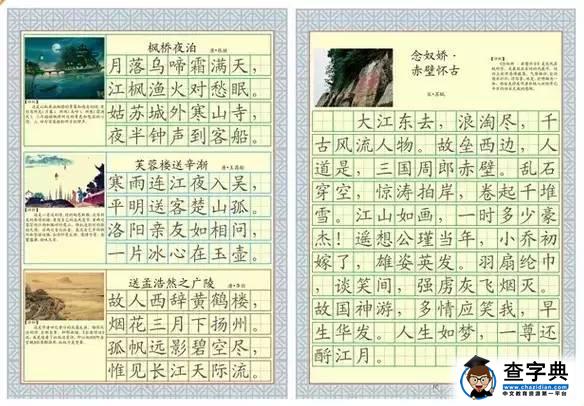 枫桥夜泊 唐·张继
月落乌啼霜满天，
江枫渔火对愁眠。
姑苏城外寒山寺，
夜半钟声到客船。
芙蓉楼送辛渐 唐·王昌龄
寒雨连江夜入吴，
平明送客楚山孤。
洛阳亲友如相问，
一片冰心在玉壶。
送孟浩然之广陵 唐·李白
故人西辞黄鹤楼，
烟花三月下扬州。
孤帆远影碧空尽，
惟见长江天际流。
念奴娇·
赤壁怀古
宋·苏轼
大江东去，浪淘尽，千
古风流人物。故垒西边，人
道是，三国周郎赤壁。乱石
穿空，惊涛拍岸，卷起千堆
雪。江山如画，一时多少豪
杰！遥想公瑾当年，小乔初
嫁了，雄姿英发。羽扇纶巾
，谈笑间，强虏灰飞烟灭。
故国神游，多情应笑我，早
生华发。人生如梦，一尊还
酹江月。
查字典
www.chazidian.com
中文教育资源第一平台